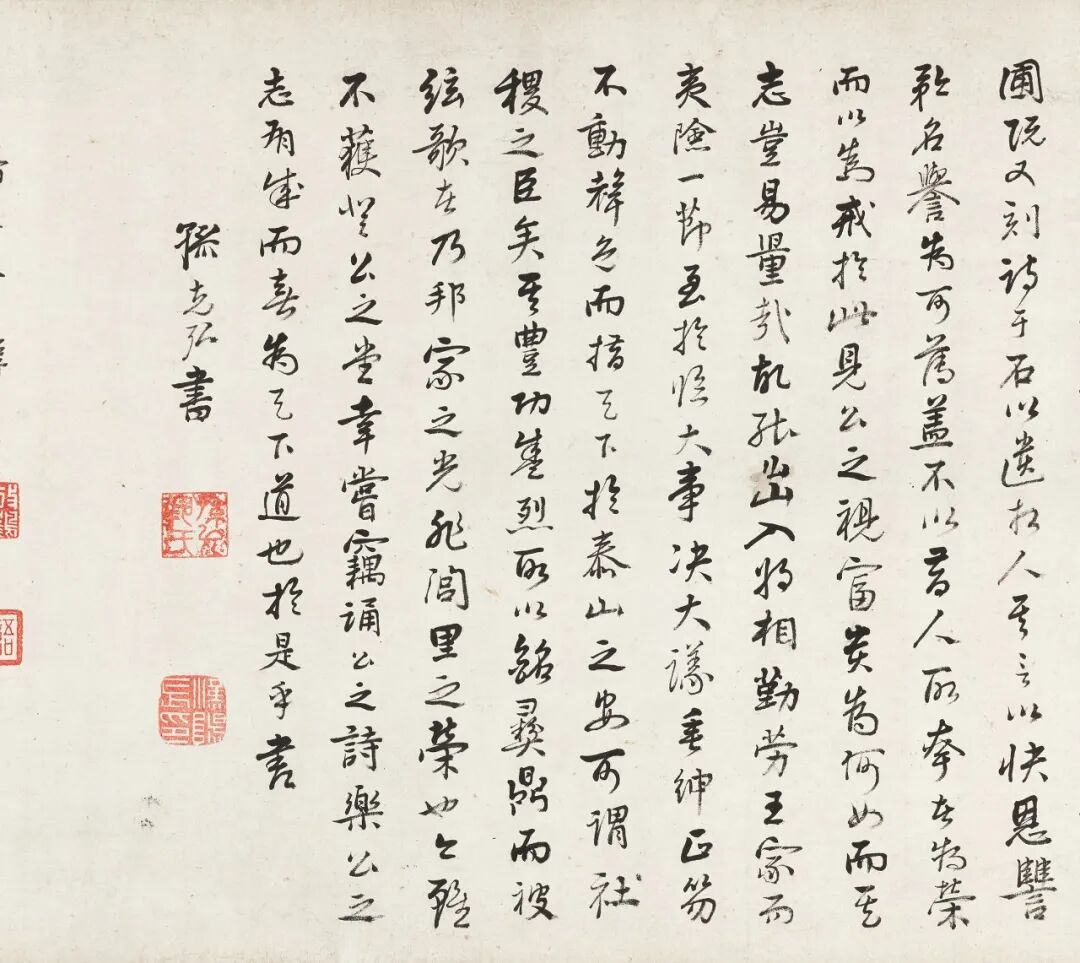 圃既又刻詩于石以遺相人其言以快恩讐
矜名譽為可薄蓋不以昔人所夸者為榮
而以為戒於此見公之視富貴為何如而其
志豈易量哉故能出入將相勤勞王家而
夷險一節至於臨大事決大議垂紳正笏
不動聲色而措天下於泰山之安可謂社
稷之臣矣其豐功盛烈所以銘彝鼎而被
絃歌者乃邦家之光非閭里之榮也余雖
不獲登公之堂幸嘗竊誦公之詩樂公之
志有成而喜為天下道也於是乎書
孫克弘書